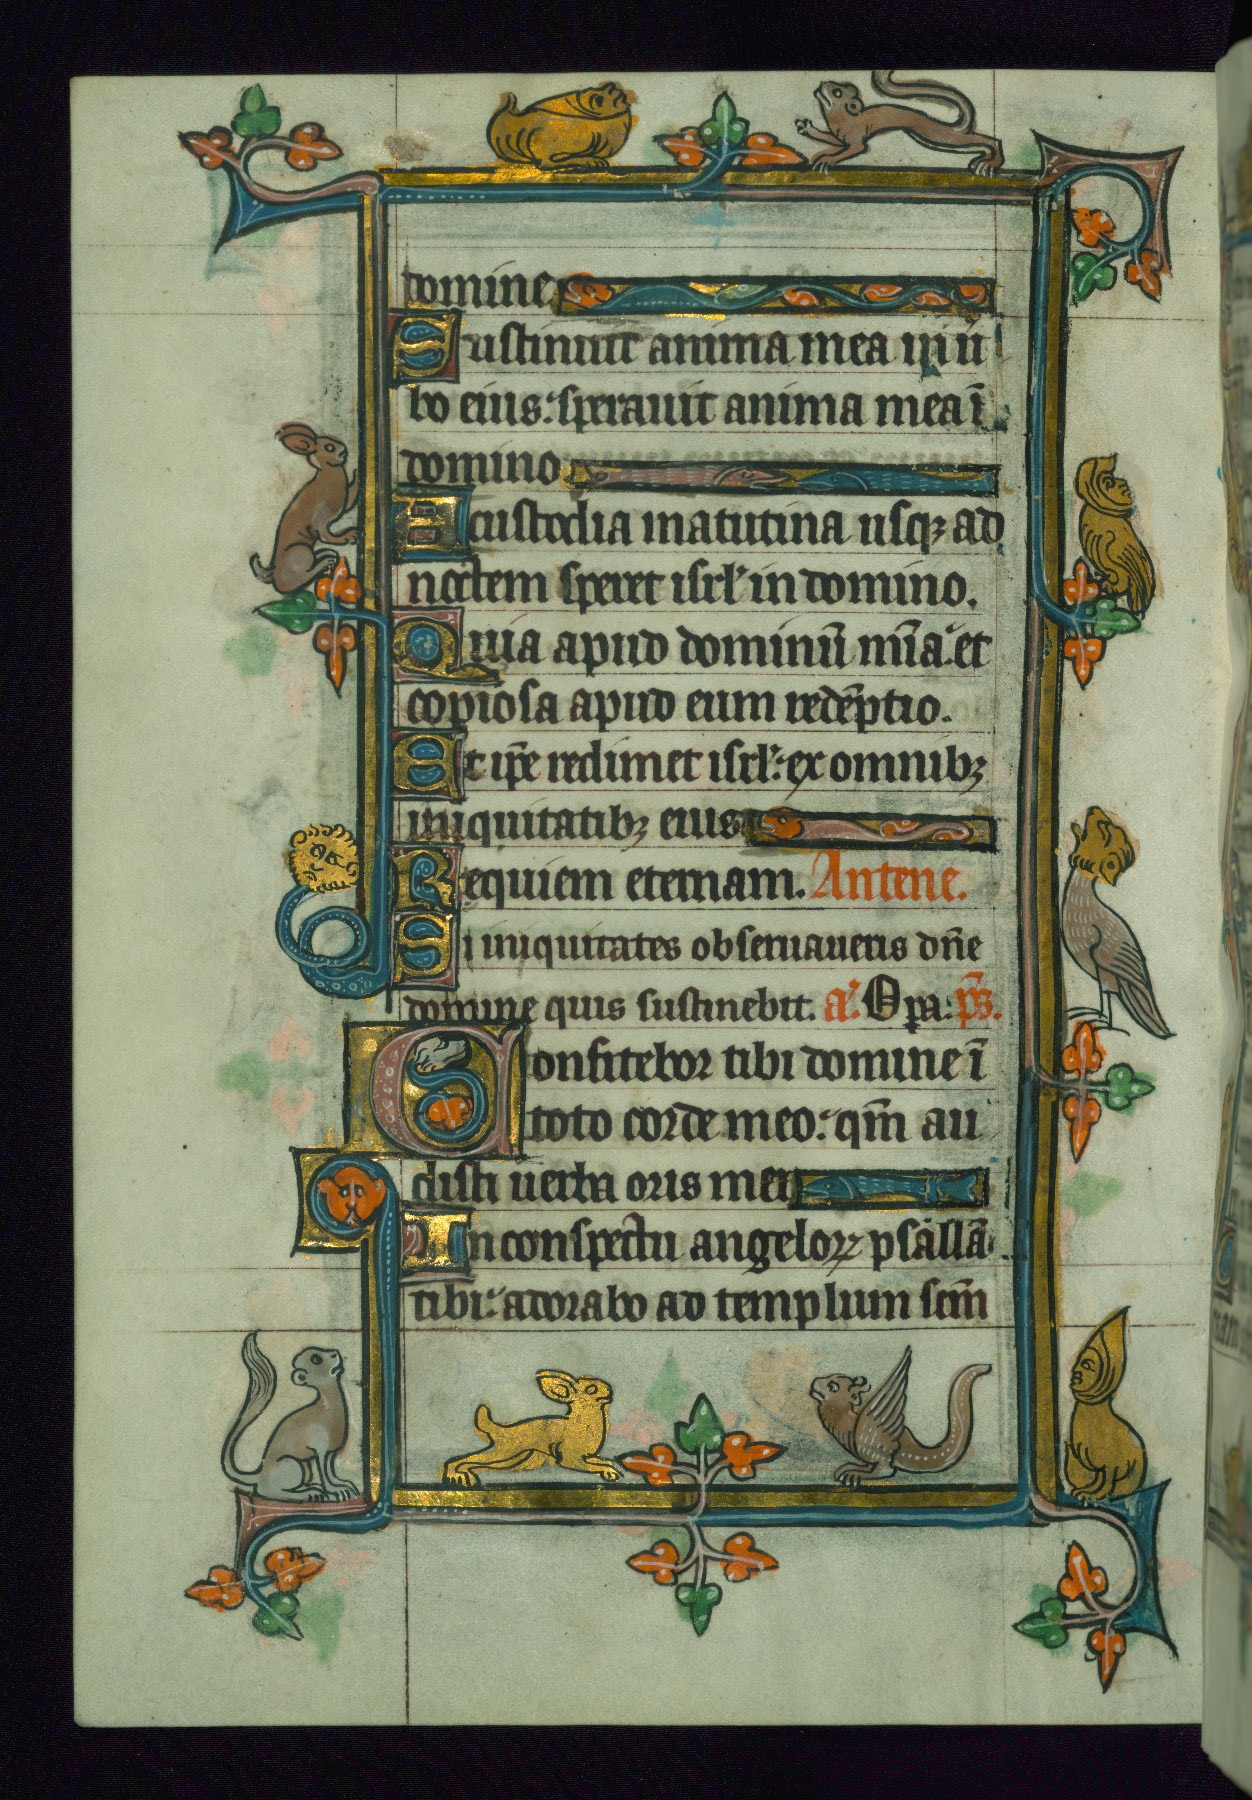 domine
Sustinuit anima mea in u
bo eius: sperauit anima mea ī
domino
A custodia matutina usqꝫ ad
noctem speret isrl' in domino.
Quia apud dominū mīa et
copiosa apud eum redēptio.
Et ip̄e redimet isrl': ex omnibꝫ
iniquitatibꝫ eius
Requiem eternam. Antene.
Si iniquitates obseruaueris dn̄e
domine quis sustinebit. a'. Opa: p̄s.
Confitebor tibi domine ī
toto corde meo: qm̄ au
disti uerba oris mei
In conspectu angeloꝝ psallā
tibi: adorabo ad templum scm̄